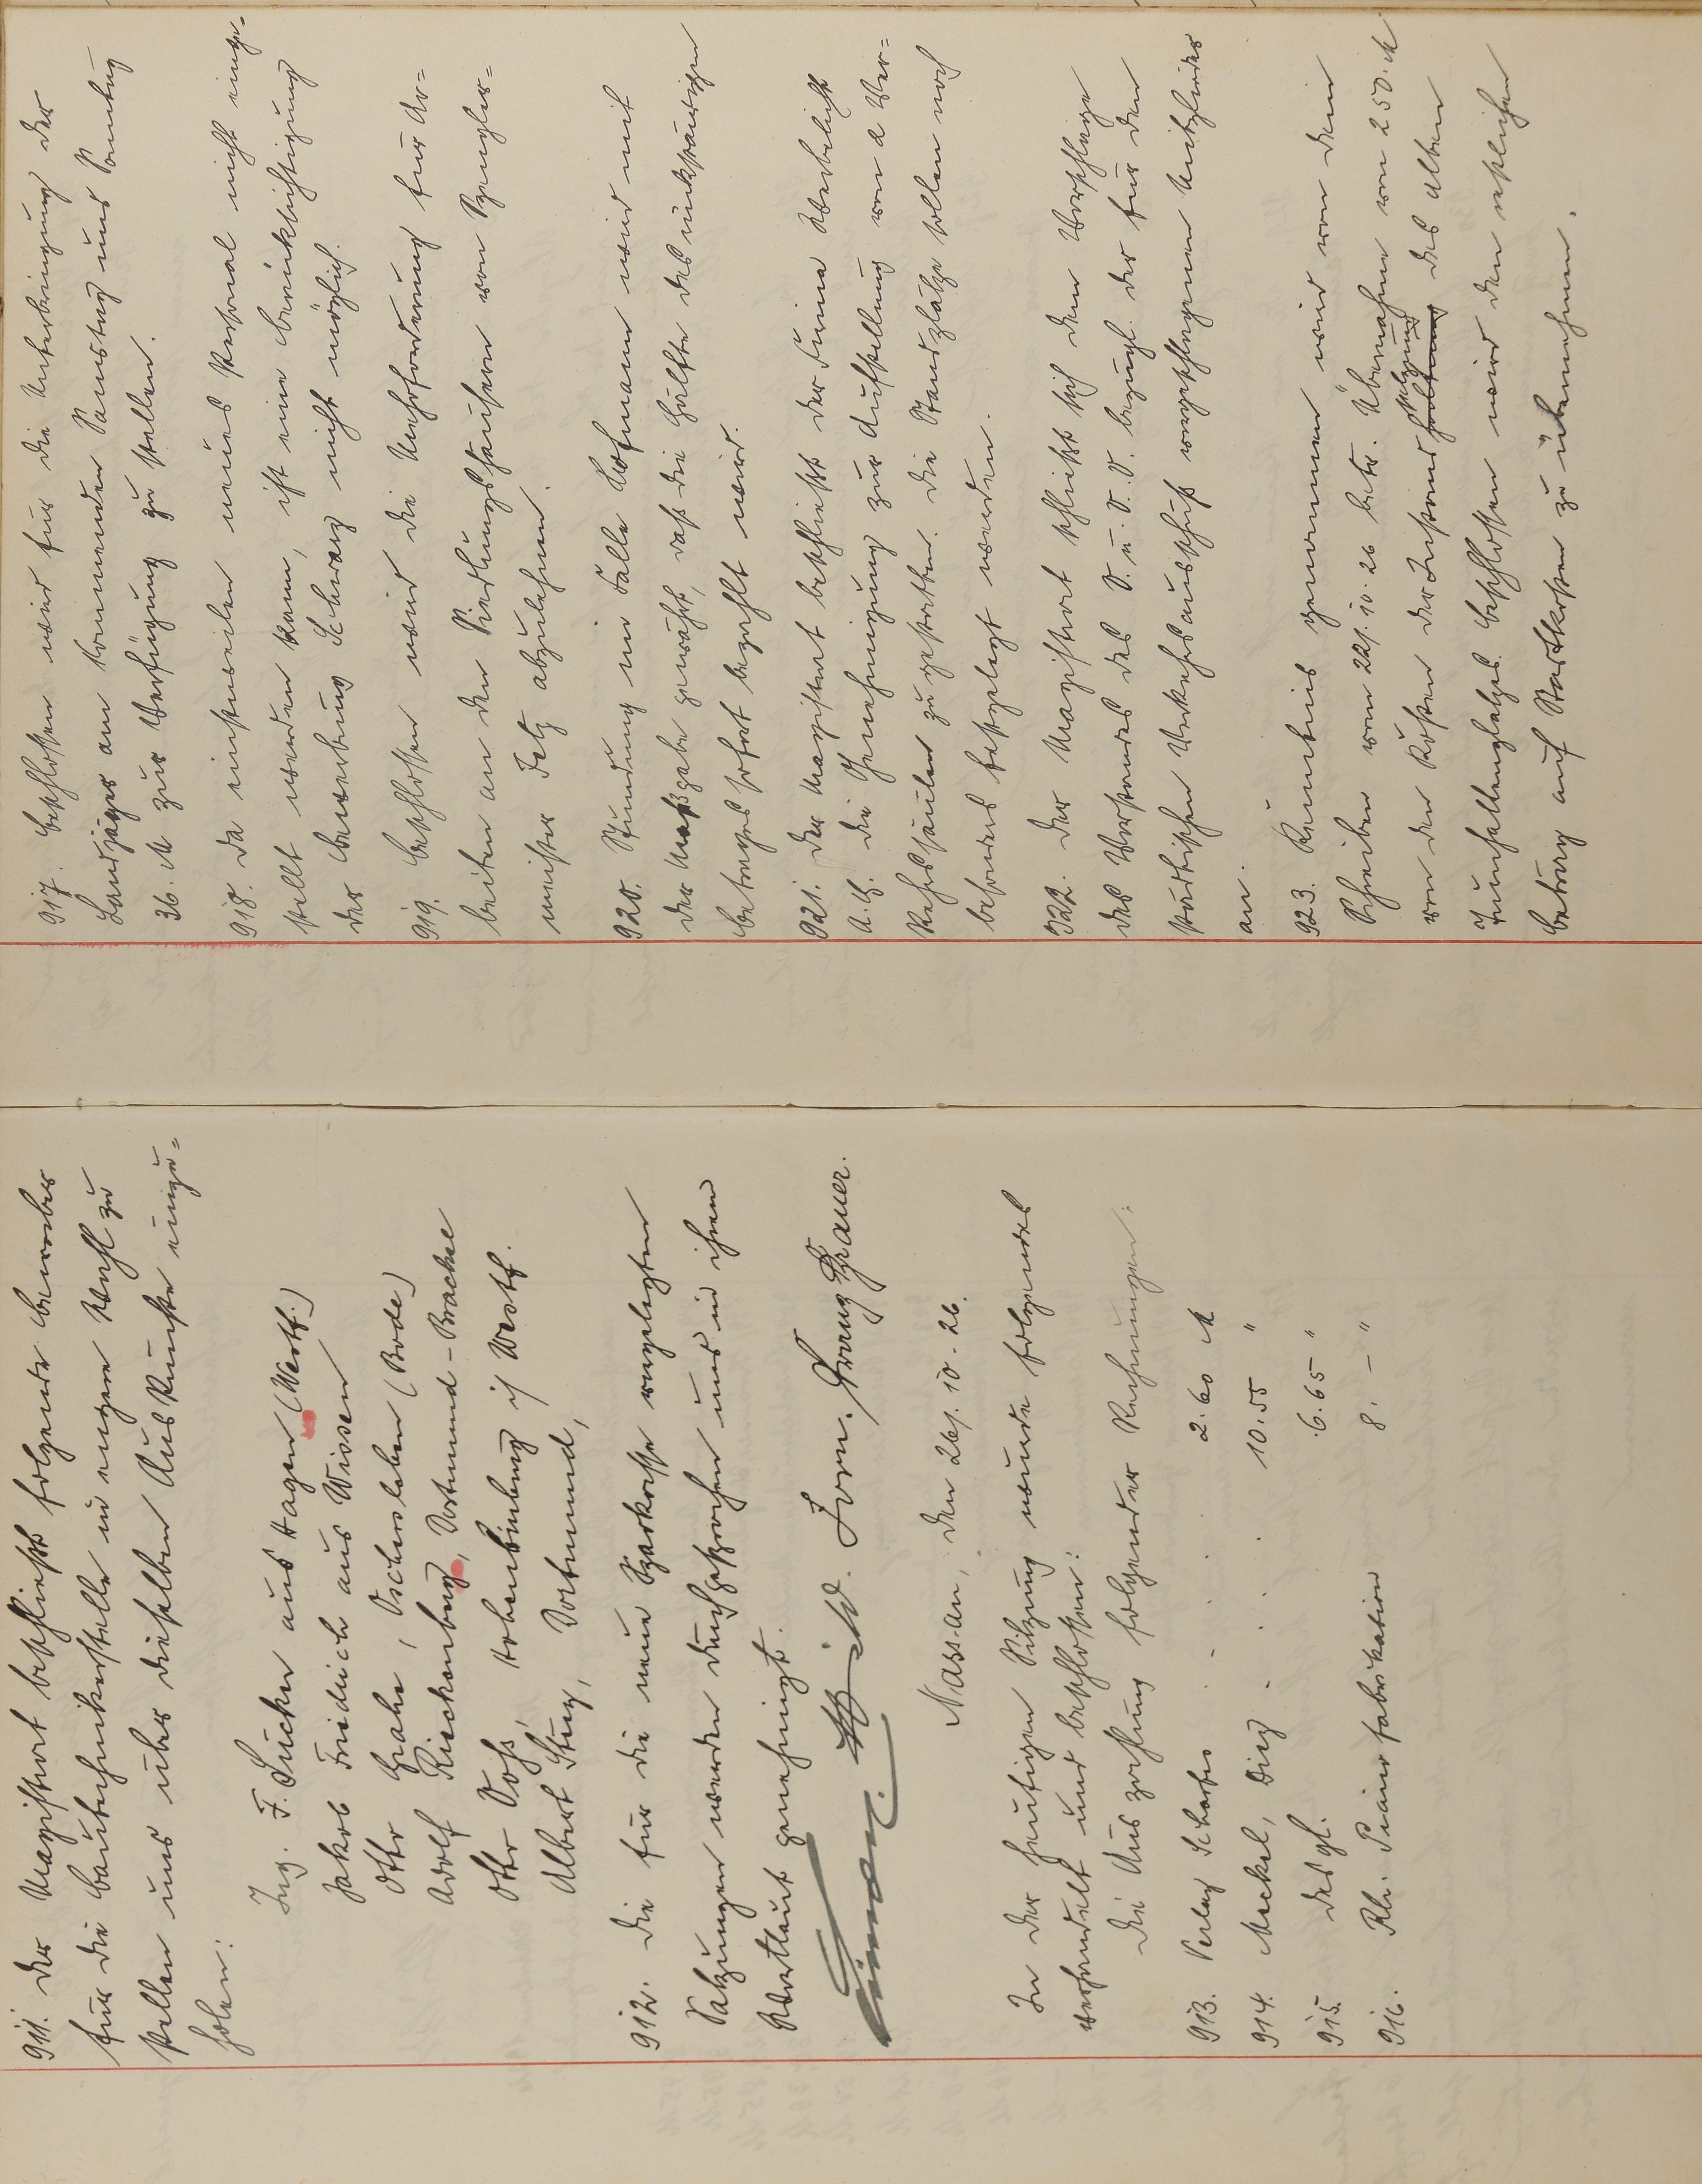 911. Der Magistrat beschließt folgende Bewerber
für die Bautechnikerstelle in engere Wahl zu
stellen und über dieselben Auskünfte einzu=
holen:
Ing. F. Sucker aus Hagen (Westf.)
Jakob Friedrich aus Wissen
Otto Grahe, Oschersleben (Bode)
Adolf Rieckenburg, Dortmund-Brackel
Otto Voß, Hohenlimburg i/ Westf.
Albert Stug, Dortmund,
912. Die für die neue Sparkasse vorgelegten
Satzungen werden durchgesprochen und in ihrem
Wortlaut genehmigt.
Nassau, den 26. 10. 26.
In der heutigen Sitzung wurde folgendes
verhandelt und beschlossen:
Die Auszahlung folgender Rechnungen:
913. Verlag Scharfe . . . . 2.60 M
914. Meckel, Diez . . . . 10.55 "
915. desgl. 6.65 "
916. Rh. Trainsfabrikation 8. – "
917. Beschlossen wird für die Unterbringung der
Landjäger am kommenden Samstag und Sonntag
36. M zur Verfügung zu stellen.
918. Da einstweilen neues Personal nicht einge=
stellt werden kann, ist eine Berücksichtigung
der Bewerbung Schwarz nicht möglich.
919. Beschlossen wird die Mehrforderung für Ar=
beiten an den Siedlungshäusern von Spengler=
meister Fetz abzulehnen.
920. Stundung im Falle Hofmann wird mit
der Maßgabe gewährt, daß die Hälfte des rückständigen
Betrages sofort bezahlt wird.
921. Der Magistrat beschließt der Firma Weberlicht
A.G. die Genehmigung zur Aufstellung von 2 Ver=
kehrssäulen zu gestatten. Die Standplätze sollen noch
besonders festgelegt werden.
922. Der Magistrat schließt sich dem Vorschlage
des Vorstandes des V. u. V. V. bezügl. der für den
städtischen Verkehrsausschuß vorgeschlagenen Mitglieder
an.
923. Kenntnis genommen wird von dem
Schreiben vom 22. 10. 26 betr. Übernahme von 250. M
von den Kosten der Instandsetzung des alten
Turnhallenplatzes. Beschlossen wird den restlichen
Betrag auf Stadtkosten zu übernehmen.